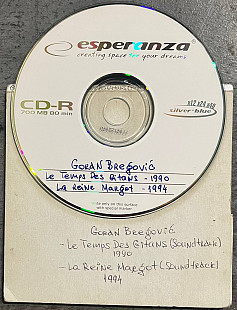 esperanza
creating space for your dreams
CD-R
700 MB 80 min
silver-blue
Goran Bregović
Le Temps Des Gitans - 1990
La Reine Margot - 1994
use only on this surface
with special marker
Goran Bregović
- Le Temps Des Gitans (Soundtrack)
1990
- La Reine Margot (Soundtrack)
1994